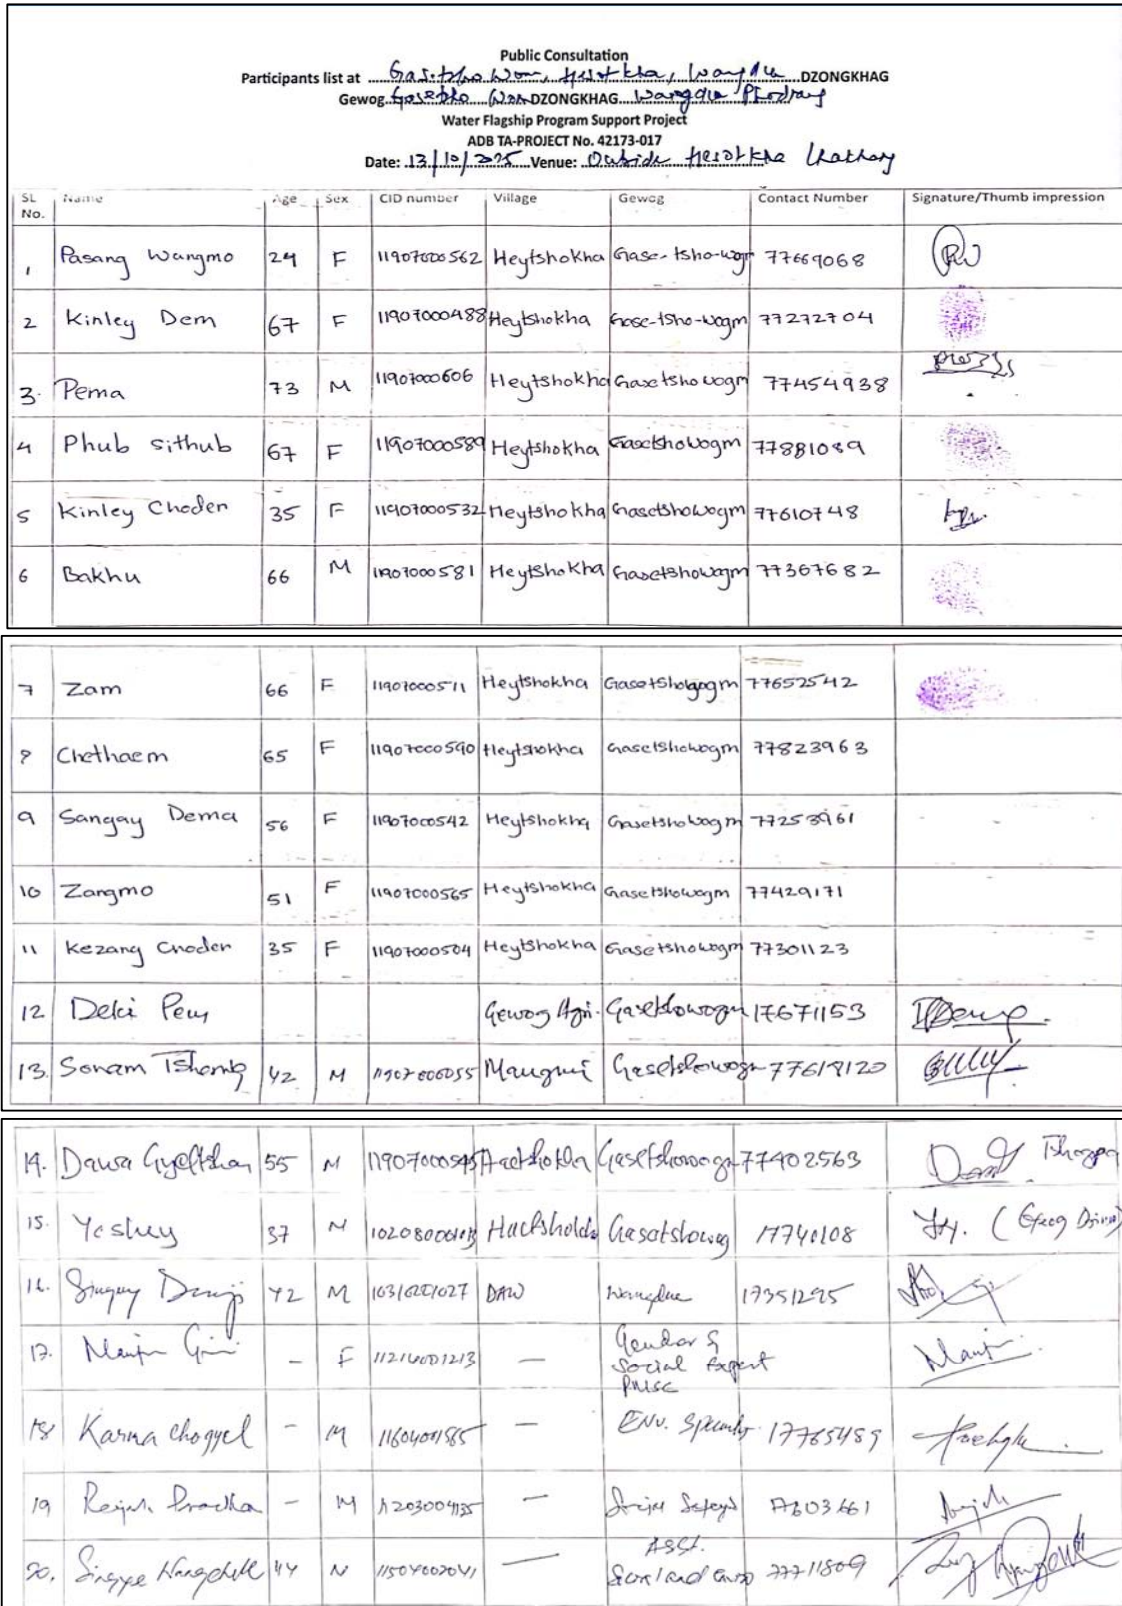 Public Consultation
Participants list at Gasetsho Wom, Hesotkha, Wangdue DZONGKHAG
Gewog. Gasetsho Wom DZONGKHAG. Wangdue Phodrang
Water Flagship Program Support Project
ADB TA-PROJECT No. 42173-017
Date: 13/10/2025 Venue: Outside Hesotkha Lhakhang
SL No. Name Age Sex CID number Village Gewog Contact Number Signature/Thumb impression
1 Pasang Wangmo 24 F 11907000562 Heytshokha Gase-tsho-wogm 77669068
2 Kinley Dem 67 F 11907000488 Heytshokha Gase-tsho-wogm 77272704
3. Pema 73 M 11907000606 Heytshokha Gasetshowogm 77454938
4 Phub sithub 67 F 11907000589 Heytshokha Gasetshowogm 77881089
5 Kinley Choden 35 F 11907000532 Heytshokha Gasetshowogm 77610748
6 Bakhu 66 M 11907000581 Heytshokha Gasetshowogm 77367682
7 Zam 66 F 11907000511 Heytshokha 77652542
8 Chethaem 65 F 11907000590 Heytshokha Gasetshowogm 77823963
9 Sangay Dema 56 F 11907000542 Heytshokha Gasetshowogm 77253961
10 Zangmo 51 F 11907000565 Heytshokha Gasetshowogm 77429171
11 Kezang Choden 35 F 11907000504 Heytshokha Gasetshowogm 77301123
12 Deki Gewog Agri. Gasetshowogm 17671153
13. Sonam 42 M Gasetshowogm 77618120
14. Dawa Gyeltshan 55 M 11907000545 Gasetshowogm 77402563 Tshogpa
15. Yeshey 37 M Gasetshowog 17740108
16. 42 M Wangdue 17351295
17. – F 11214001213 — Gender & Social Expert
18 Karma Chogyel – M 11604001865 — Env. 17765489
19 – M —
20. 44 — Asst. 77711809